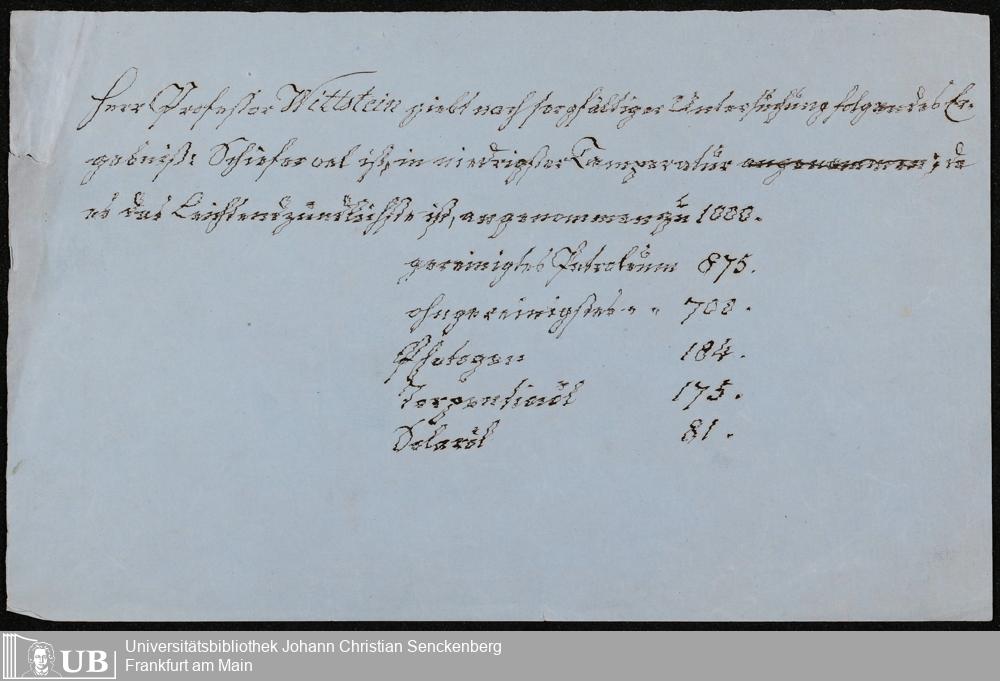 Herr Professor Wittstein giebt nach sorgfältiger Untersuchung folgendes Er-
gebniß: Schieferoel ist, in niedrigster Temperatur angenommen, da
es das Leichtendzündlichste ist, angenommen zu 1000.
gereinigtes Petroleum 875.
ohngereinigtes " " 700.
Photogen 184.
Terpentinöl 175.
Solaröl 81.
UB
Universitätsbibliothek Johann Christian Senckenberg
Frankfurt am Main